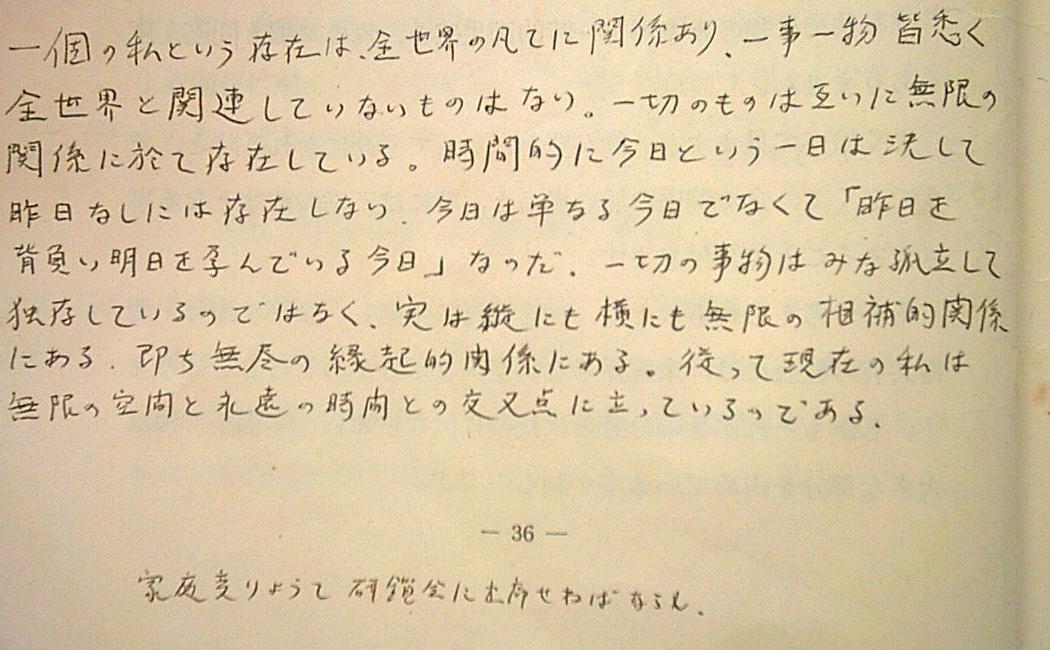 一個の私という存在は、全世界の凡てに関係あり、一事一物皆悉く
全世界と関連していないものはない。一切のものは互いに無限の
関係に於て存在している。時間的に今日という一日は決して
昨日なしには存在しない、今日は単なる今日でなくて「昨日を
背負い明日を孕んでいる今日」なのだ、一切の事物はみな孤立して
独存しているのではなく、実は縦にも横にも無限の相補的関係
にある、即ち無尽の縁起的関係にある。従って現在の私は
無限の空間と永遠の時間との交叉点に立っているのである、
— 36 —
家庭りようて研鑽会に出席せねばならん、